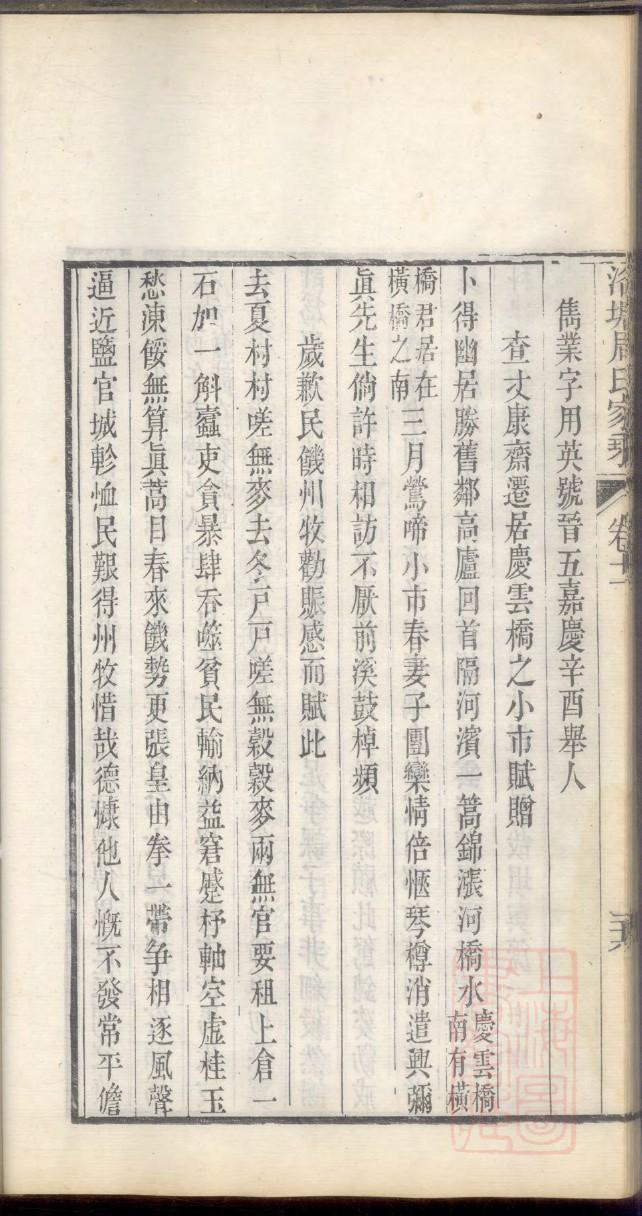 洛塘周氏家乘 卷十二
雋業字用英號晉五嘉慶辛酉舉人
查丈康齋遷居慶雲橋之小市賦贈
卜得幽居勝舊鄰高廬回首隔河濱一篙錦漲河橋水慶雲橋南有橫
橋君居在橫橋之南三月鶯啼小市春妻子團欒情倍愜琴樽消遣興彌
眞先生倘許時相訪不厭前溪鼓棹頻
歲歉民饑州牧勸賑感而賦此
去夏村村嗟無麥去冬戸戸嗟無穀穀麥兩無官要租上倉一
石加一斛蠹吏貪暴肆吞噬貧民輸納益窘蹙杼軸空虛桂玉
愁凍餒無算眞蒿目春來饑勢更張皇由拳一帶争相逐風聲
逼近鹽官城軫恤民艱得州牧惜哉德慷他人慨不發常平儋